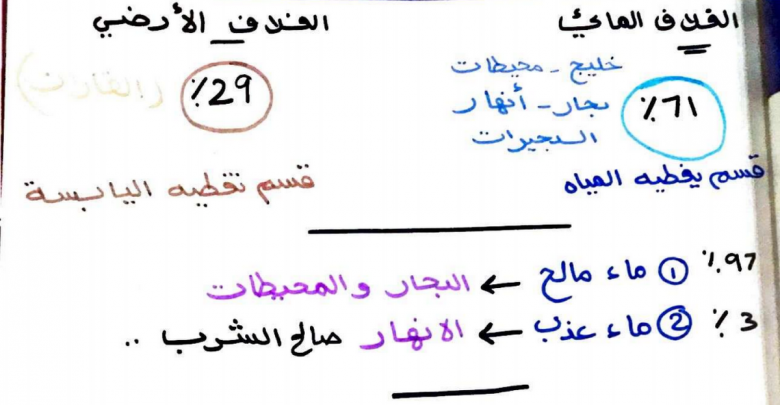 الغلاف المائي
خليج - محيطات
بحار - أنهار
البحيرات
٪71
قسم يغطيه المياه
الغلاف الأرضي
٪29 (القارات)
قسم تغطيه اليابسة
٪97 ① ماء مالح ← البحار والمحيطات
٪3 ② ماء عذب ← الانهار صالح الشرب ..